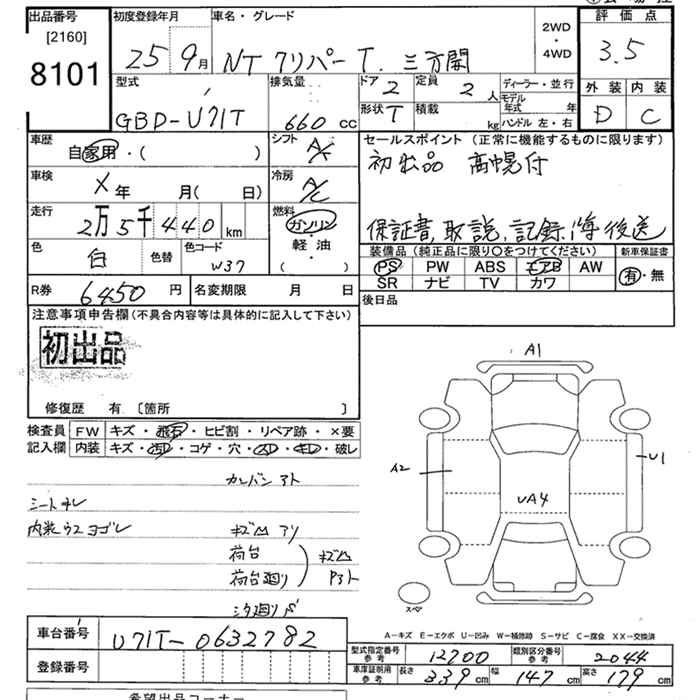 出品番号 初度登録年月 車名・グレード 2WD・4WD 評価点
[2160]
8101 25 9月 NT クリパー T. 三方開 3.5
型式 排気量 ドア 2 定員 2人 ディーラー・並行 外装 内装
GBD-U71T 660 CC 形状 T 積載 kg モデル年式 年 ハンドル 左・右 D C
車歴 自家用・( ) シフト セールスポイント (正常に機能するものに限ります)
初出品 高幌付
車検 X年 月( 日) 冷房 A/C
走行 2万5千440 km 燃料 ガソリン 軽油・( )
保証書, 取説, 記録簿後送
色 白 色替 色コード W37
装備品 (純正品に限り○をつけてください) 新車保証書
PS PW ABS エアB AW 有・無
SR ナビ TV カワ
R券 6450 円 名変期限 月 日 後日品
注意事項申告欄 (不具合内容等は具体的に記入して下さい)
初出品
修復歴 有 〔箇所 〕
検査員 FW キズ・飛石・ヒビ割・リペア跡・×要
記入欄 内装 キズ・汚レ・コゲ・穴・スレ・キレ・破レ
カンバン アト
シートキレ
内装ウスヨゴレ キズ凹アリ
荷台
荷台廻リ キズ凹 Pアト
シタ廻リ
A1
A2
U1
UA4
スペア
A-キズ E-エクボ U-凹み W-補修跡 S-サビ C-腐食 XX-交換済
車台番号 U71T-0632782
登録番号
型式指定番号 参考 12700 類別区分番号 参考 2044
車庫証明用 参考 長さ 339 cm 幅 147 cm 高さ 179 cm
希望出品コーナー